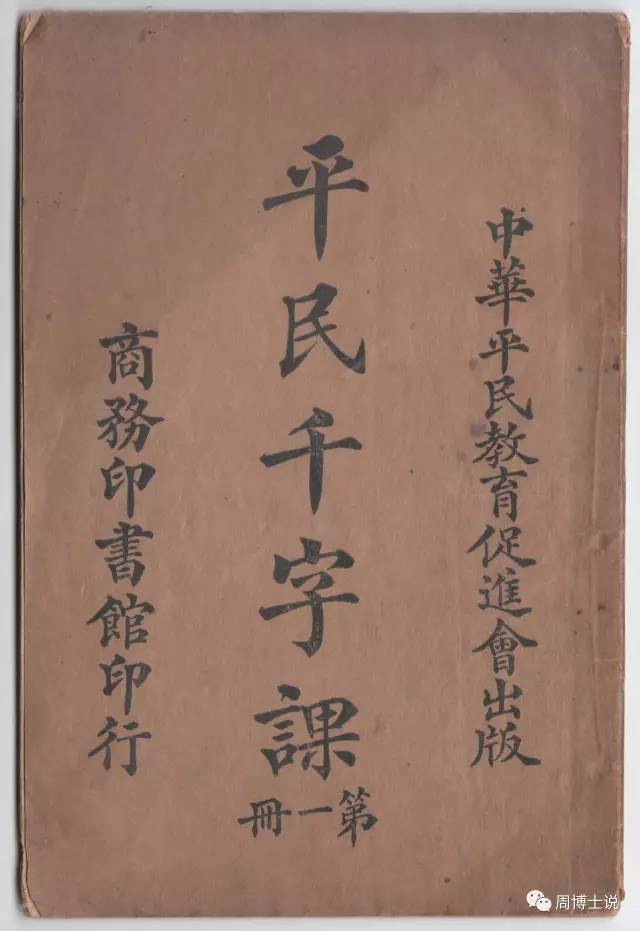 中華平民教育促進會出版
平民千字課
第一冊
商務印書館印行
周博士说